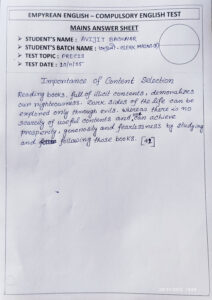 EMPYREAN ENGLISH – COMPULSORY ENGLISH TEST
MAINS ANSWER SHEET
➤ STUDENT'S NAME : AVIJIT BAGHAR
➤ STUDENT'S BATCH NAME : CLERK MAINS
➤ TEST TOPIC : PRECIS
➤ TEST DATE :
Importance of Content Selection
Reading books, full of illicit contents, demoralises
our righteousness. Dark sides of the life can be
explored only through evils. Whereas there is no
scarcity of useful contents and can achieve
prosperity, generosity and fearlessness by studying
and following those books.